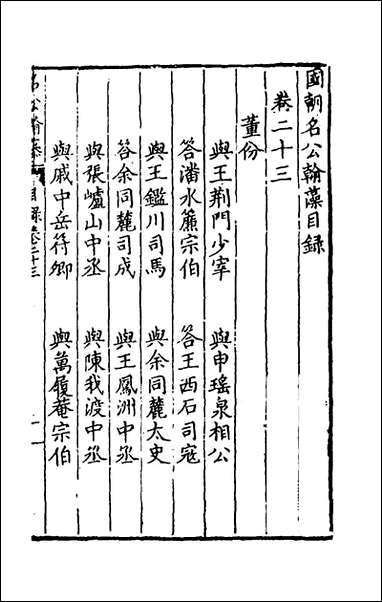 國朝名公翰藻目録
卷二十三
董份
與王荆門少宰　與申瑤泉相公
答潘水簾宗伯　答王西石司寇
與王鑑川司馬　與余同麓太史
答余同麓司成　與王鳳洲中丞
與張崌山中丞　與陳我渡中丞
與戚中岳符卿　與萬履菴宗伯
名公翰藻　目録卷二十三　一